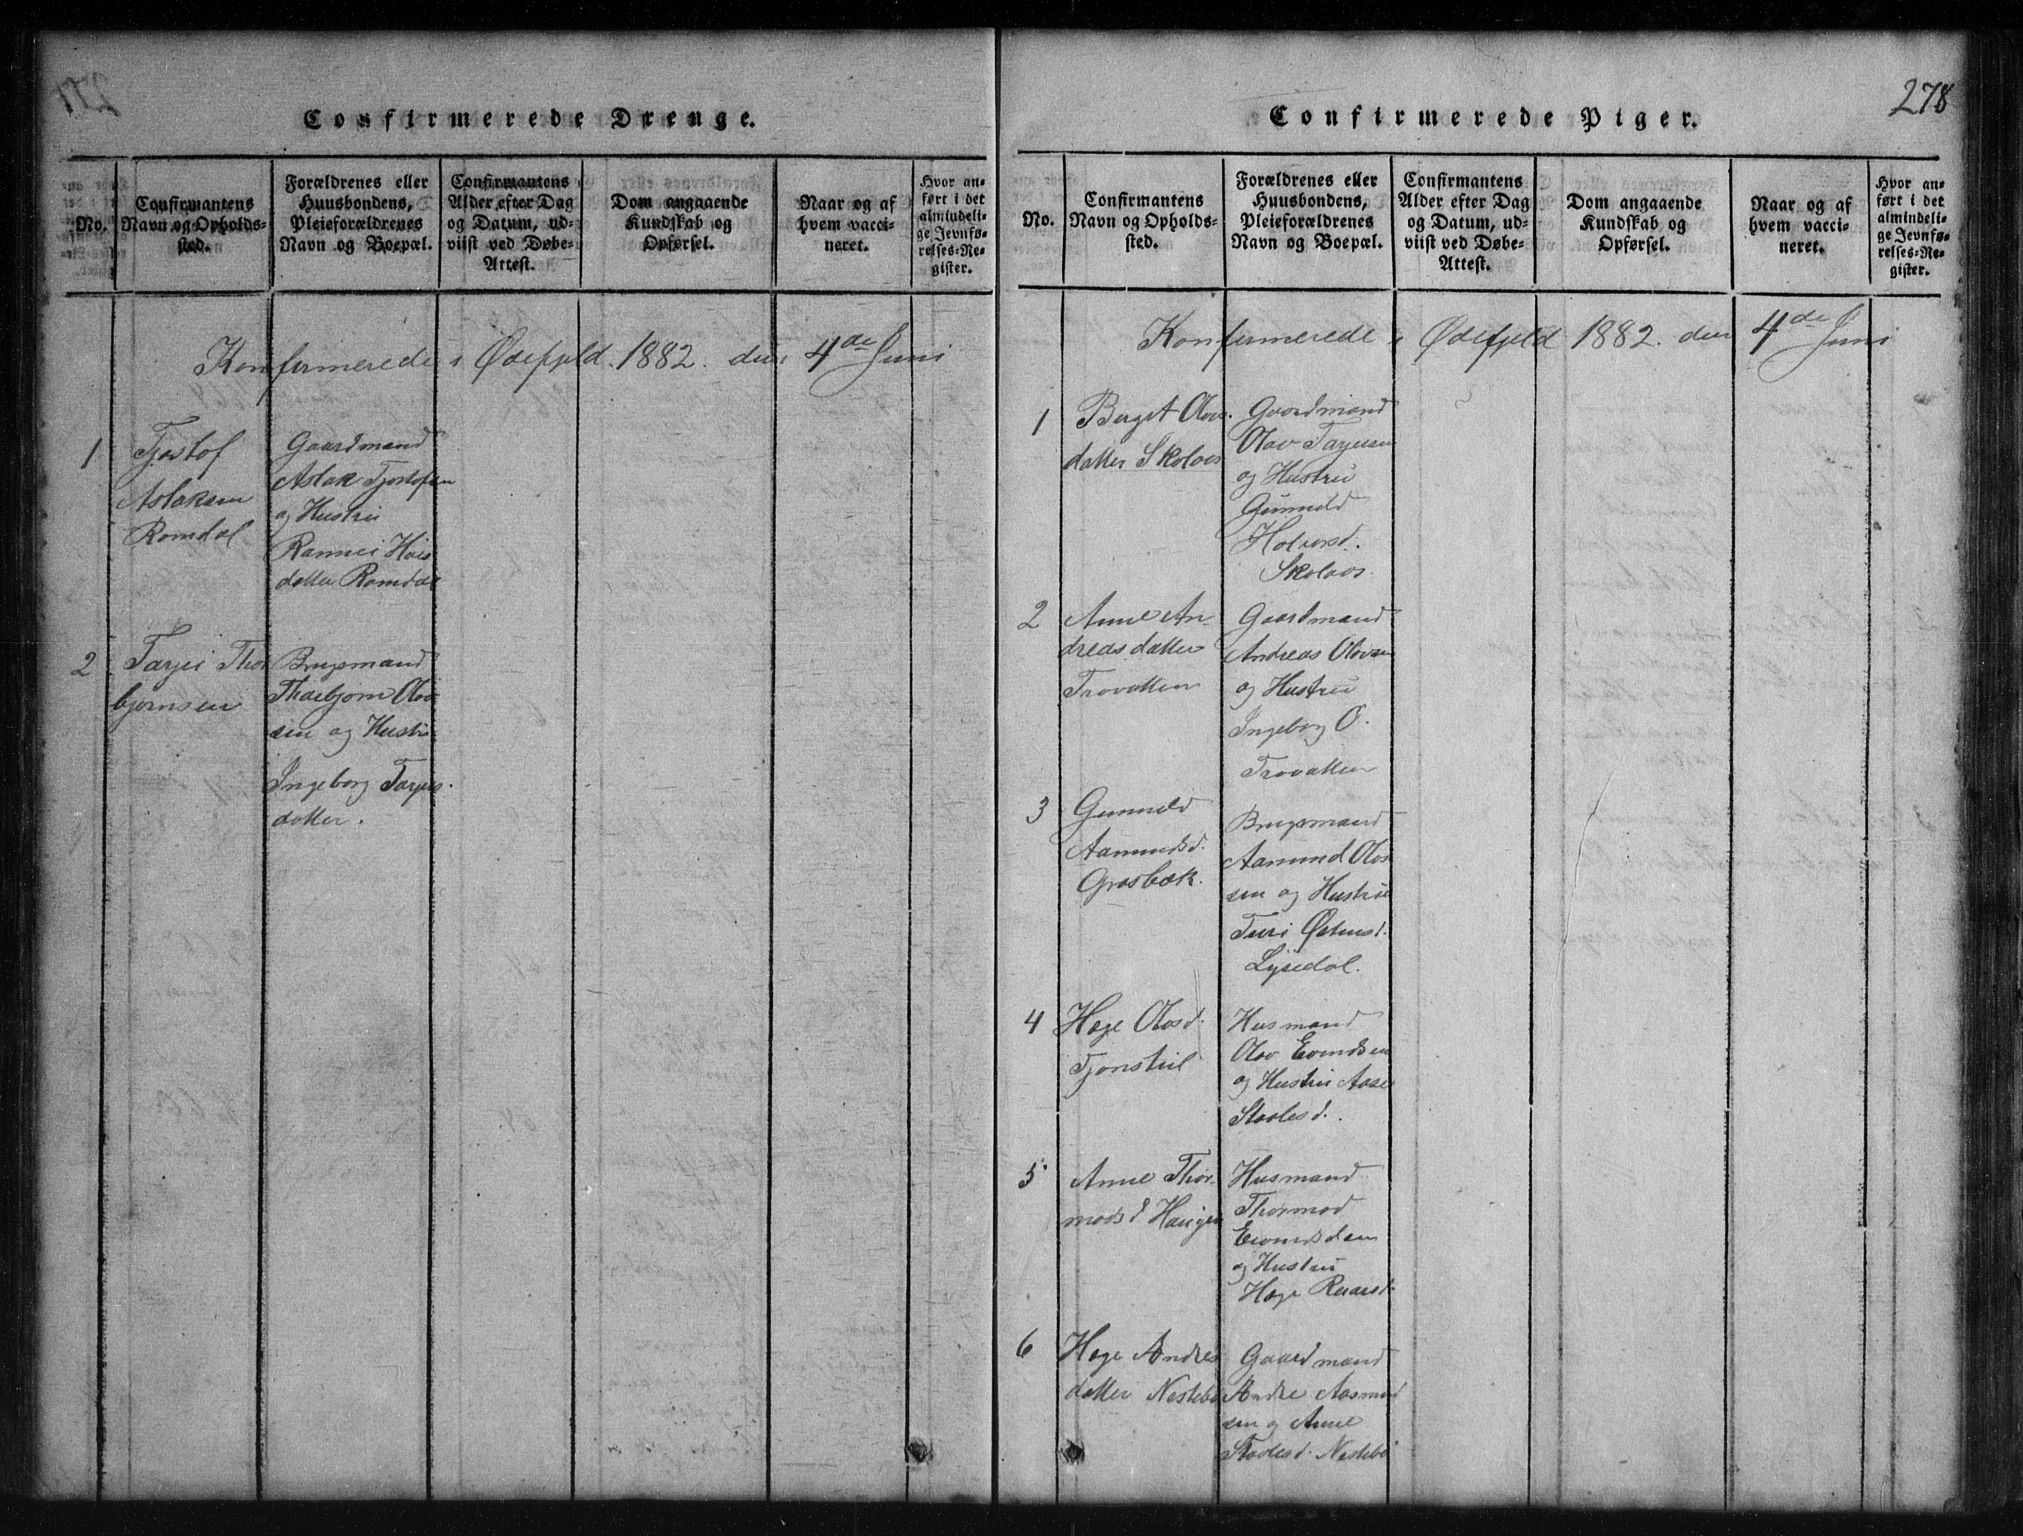 Confirmerede Drenge.
No.
Confirmantens
Navn og Opholds-
sted.
Forældrenes eller
Huusbondens,
Pleieforældrenes
Navn og Boepæl.
Confirmantens
Alder efter Dag
og Datum, ud-
viist ved Døbe-
Attest.
Dom angaaende
Kundskab og
Opførsel.
Naar og af
hvem vacci-
neret.
Hvor an-
ført i det
almindeli-
ge Jevnfø-
relses-Re-
gister.
Konfirmerede i Ødefjeld 1882. den 4de Juni
1
Tjostof
Aslaksen
Romdal
Gaardmand
Aslak Tjostofsen
og Hustru
Rannei
datter Romdal
2
Tarjei Thor
bjornsen
Brugsmand
Thorbjorn Olav
sen og Hustru
Ingeborg Tarjeis
datter.
278
Confirmerede Piger.
No.
Confirmantens
Navn og Opholds-
sted.
Forældrenes eller
Huusbondens,
Pleieforældrenes
Navn og Boepæl.
Confirmantens
Alder efter Dag
og Datum, ud-
viist ved Døbe-
Attest.
Dom angaaende
Kundskab og
Opførsel.
Naar og af
hvem vacci-
neret.
Hvor an-
ført i det
almindeli-
ge Jevnfø-
relses-Re-
gister.
Konfirmerede i Ødefjeld 1882. den 4de Juni
1
Berget Olavs
datter Skolaas
Gaardmand
Olav Tarjeisen
og Hustru
Gunnild
Holversd.
Skolaas.
2
Anne An-
dreas datter
Trovatten
Gaardmand
Andreas Olavsen
og Hustru
Ingeborg O.
Trovatten
3
Gunnild
Aamundsd.
Grosbæk.
Brugsmand
Aamund Olav
sen og Hustru
Turi Østensd.
Lysedal.
4
Hæge Olavsd.
Tjonstul
Husmand
Olav Evindsen
og Hustru Aase
Staalesd.
5
Anne Thor-
modsd Haugen
Husmand
Thormod
og Hustru
Hæge Roarsd.
6
Hæge Andres
datter Nestebø
Gaardmand
Andre Aasmund
sen og Anne
Staalesd. Nestebø